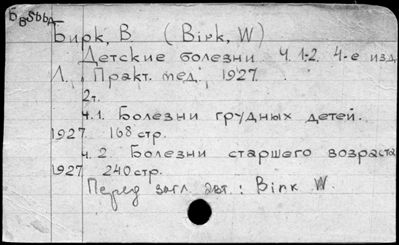 Бирк, В (Birk, W)
Детские болезни Ч. 1-2. 4-е изд.
Л., Практ. мед., 1927.
2т.
ч.1. Болезни грудных детей.
1927 168 стр.
ч. 2. Болезни старшего возраста
1927 240 стр.
Перед загл. авт.: Birk W.